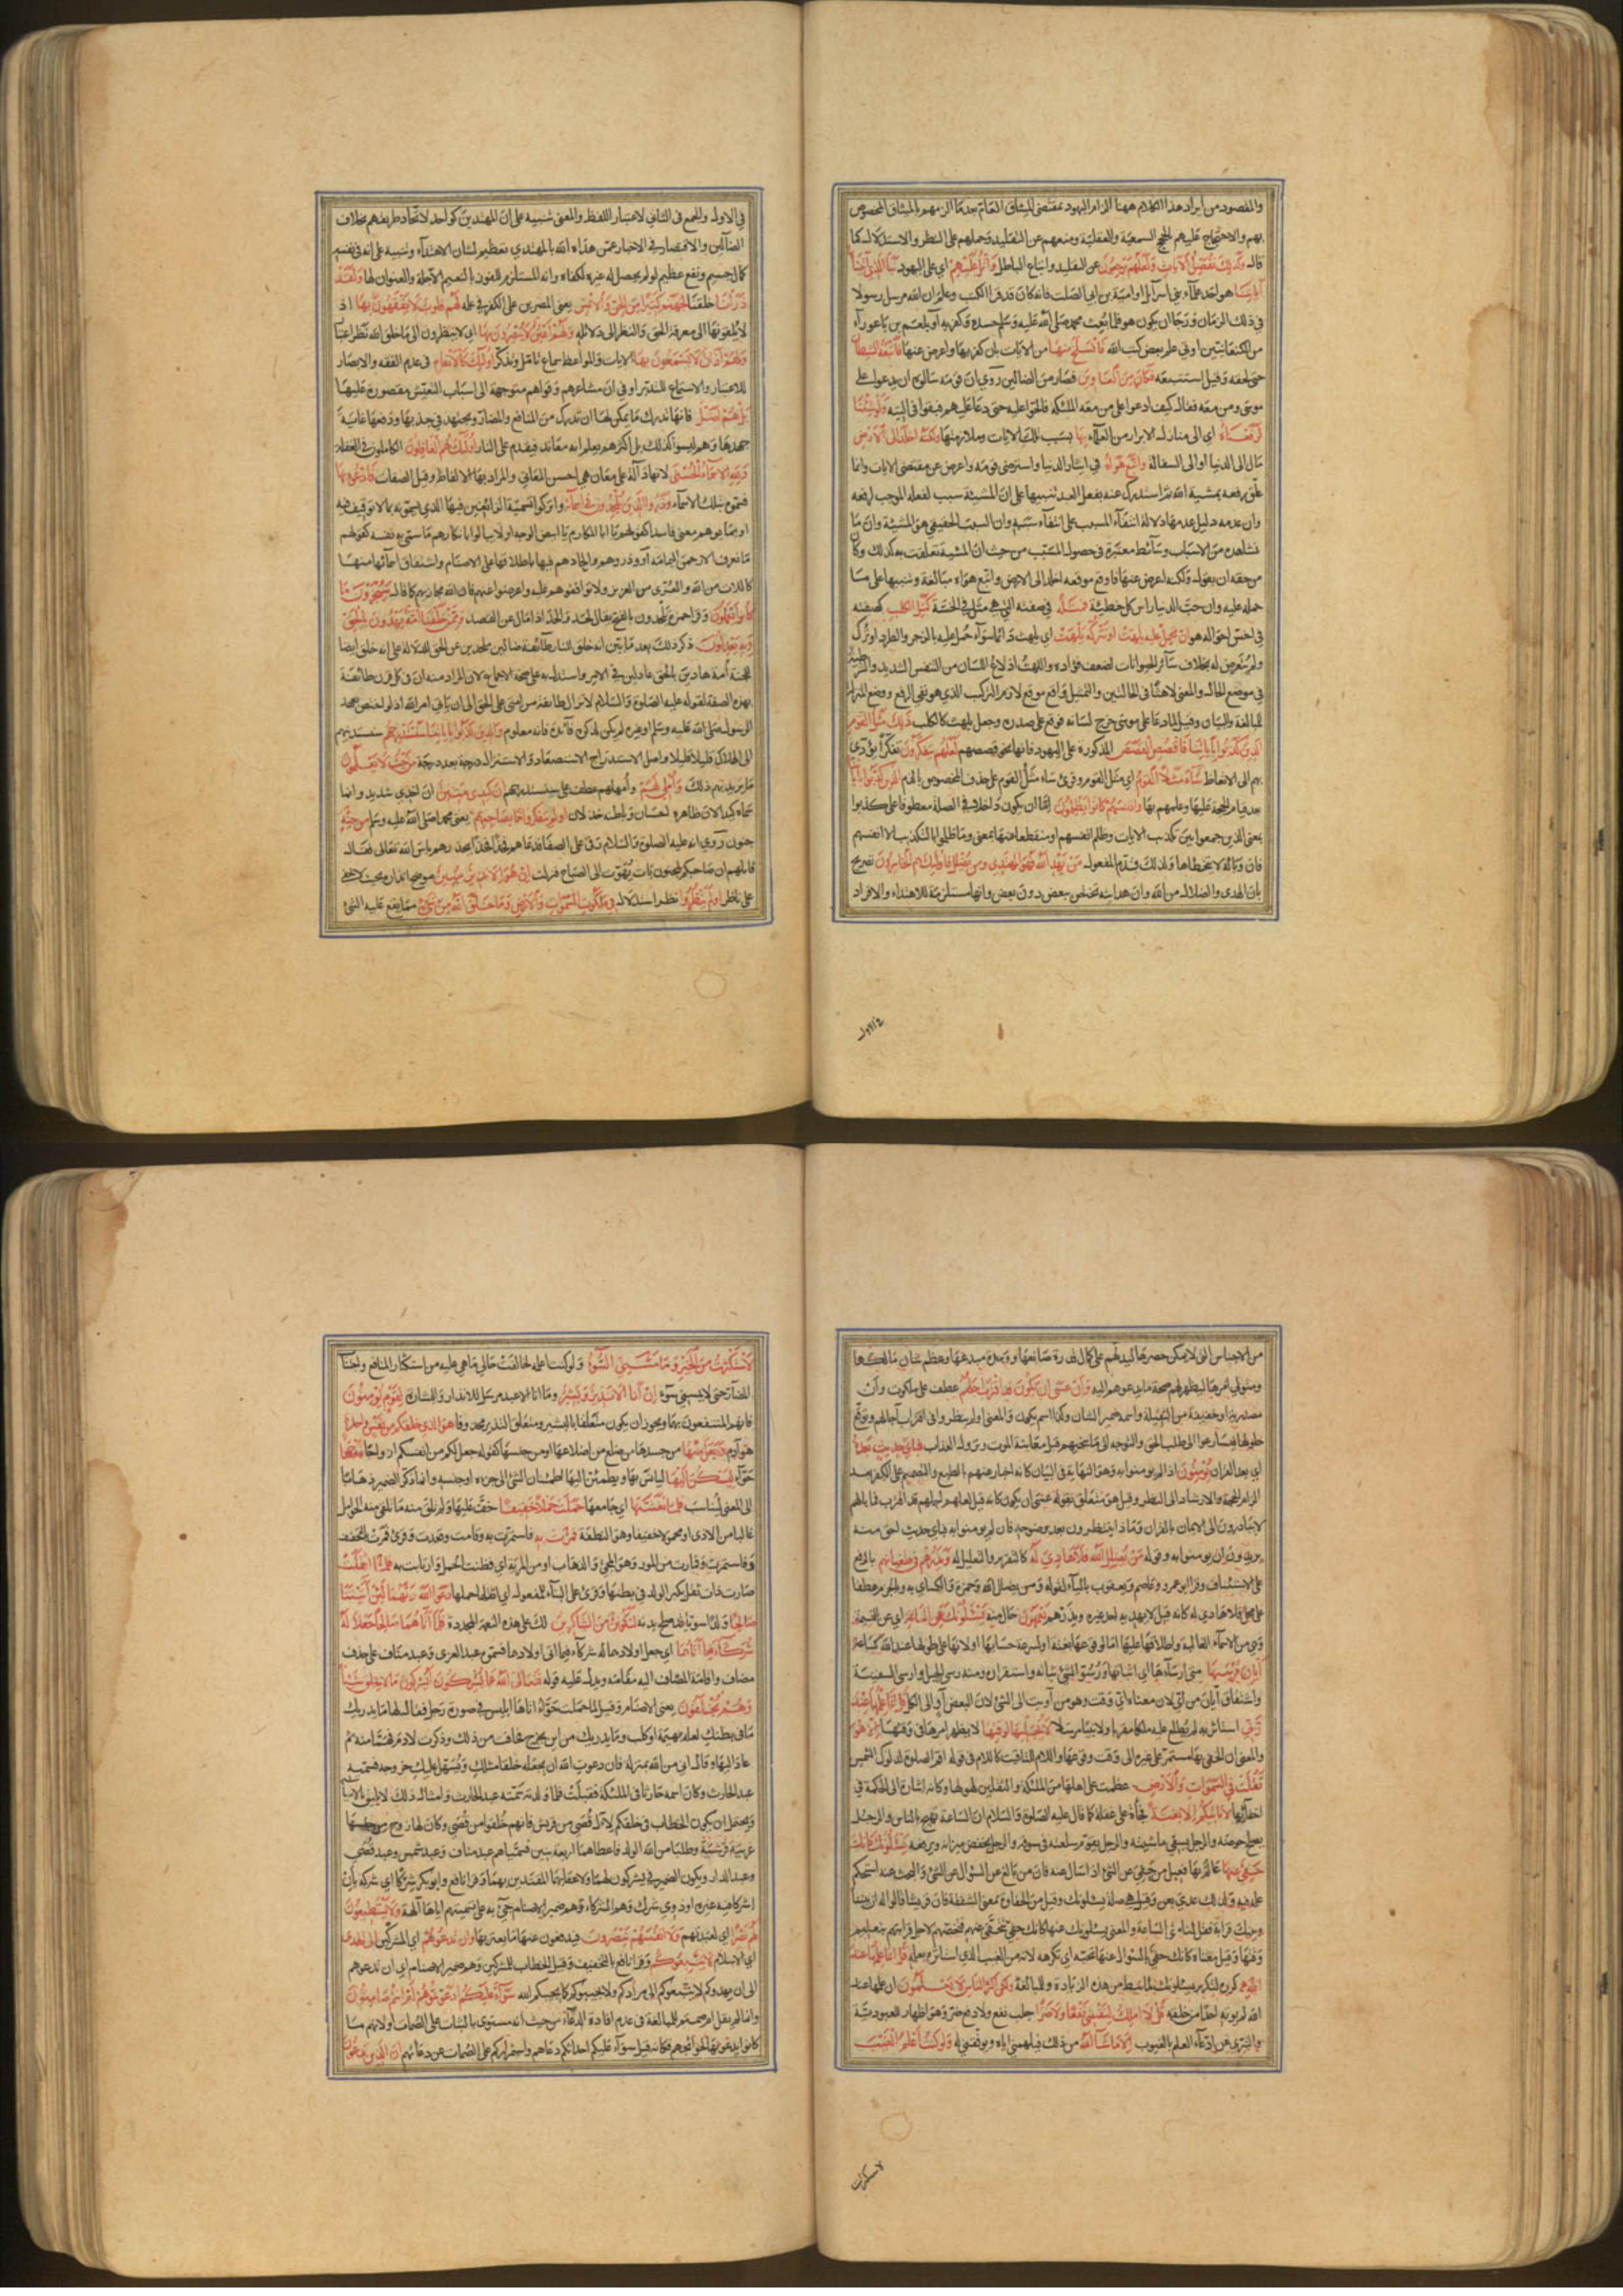 والمقصود من ايراد هذا الكلام ههنا الزام اليهود بمقتضى الميثاق العام بعد ما الزمهم بالميثاق المخصوص
بهم والاحتجاج عليهم بالحجج السمعية والعقلية ومنعهم عن التقليد وحملهم على النظر والاستدلال كما
قال وكذلك نفصل الآيات ولعلهم يرجعون عن التقليد واتباع الباطل واتل عليهم اي على اليهود نبأ الذي آتيناه
آياتنا هو احد علماء بني اسرآئل او امية بن ابي الصلت فانه كان قد قرأ الكتب وعلم ان الله مرسل رسولا
في ذلك الزمان ورجا ان يكون هو فلما بعث محمد صلى الله عليه وسلم حسده وكفر به او بلعم بن باعورآء
من الكنعانيين اوتي علم بعض كتب الله فانسلخ منها من الآيات بان كفر بها واعرض عنها فاتبعه الشيطان
حتى لحقه وقيل استتبعه فكان من الغاوين فصار من الضالين روي ان قومه سالوه ان يدعو على
موسى ومن معه فقال كيف ادعو على من معه الملئكة فالحوا عليه حتى دعا عليهم فبقوا في التيه ولو شئنا
لرفعناه اي الى منازل الابرار من العلماء بها بسبب تلك الايات وملازمتها ولكنه اخلد الى الارض
مال الى الدنيا او الى السفالة واتبع هواه في ايثار الدنيا واسترضى قومه واعرض عن مقتضى الايات وانما
علق رفعه بمشية الله ثم استدرك عنه بفعل العبد تنبيها على ان المشيئة سبب لفعله الموجب لرفعه
وان عدمه دليل عدمها دلالة انتفاء المسبب على انتفاء سببه وان السبب الحقيقي هو المشيئة وان ما
نشاهده من الاسباب وسائط معتبرة في حصول المسبب من حيث ان المشية تعلقت به كذلك وكان
من حقه ان يقول ولكنه اعرض عنها فاوقع موقعه اخلد الى الارض واتبع هواه مبالغة وتنبيها على ما
حمله عليه وان حب الدنيا راس كل خطيئة فمثله فصفته التي هي مثل في الخسة كمثل الكلب كصفته
في اخس احواله هو ان تحمل عليه يلهث او تتركه يلهث اي يلهث دائما سوآء حمل عليه بالزجر والطرد او ترك
ولم يتعرض له بخلاف سائر الحيوانات لضعف فؤاده واللهث ادلاع اللسان من التنفس الشديد والشرطية
في موضع الحال والمعنى لاهثا في الحالتين والتمثيل واقع موقع لازم التركيب الذي هو نفي الرفع ووضع المنزلة
للمبالغة والبيان وقيل لما دعا على موسى خرج لسانه فوقع على صدره وجعل يلهث كالكلب ذلك مثل القوم
الذين كذبوا بآياتنا فاقصص القصص المذكورة على اليهود فانها نحو قصصهم لعلهم يتفكرون تفكرا يؤدي
بهم الى الاتعاظ ساء مثلا القوم اي مثل القوم وقرئ ساء مثل القوم على حذف المخصوص بالذم الذين كذبوا بآياتنا
بعد قيام الحجة عليها وعلمهم بها وانفسهم كانوا يظلمون اما ان يكون داخلا في الصلة معطوفا على كذبوا
بمعنى الذين جمعوا بين تكذيب الايات وظلم انفسهم او منقطعا عنها بمعنى وما ظلموا بالتكذيب الا انفسهم
فان وباله لا يتخطاها ولذلك قدم المفعول من يهد الله فهو المهتدي ومن يضلل فاولئك هم الخاسرون تصريح
بان الهدى والضلال من الله وان هداية الله تختص ببعض دون بعض وانها مستلزمة للاهتداء والافراد
في الاول
في الاول والجمع في الثاني لاعتبار اللفظ والمعنى تنبيه على ان المهتدين كواحد لاتحاد طريقهم بخلاف
الضالين والاقتصار في الاخبار عمن هداه الله بالمهتدي تعظيم لشان الاهتدآء وتنبيه على انه في نفسه
كمال جسيم ونفع عظيم لو لم يحصل له غيره لكفاه وانه المستلزم للفوز بالنعيم الآجلة والعنوان لها ولقد
ذرأنا خلقنا لجهنم كثيرا من الجن والانس يعني المصرين على الكفر في علمه لهم قلوب لا يفقهون بها اذ
لا يلقونها الى معرفة الحق والنظر الى دلائله ولهم اعين لا يبصرون بها اي لا ينظرون الى ما خلق الله نظر اعتبار
ولهم آذان لا يسمعون بها الايات والمواعظ سماع تامل وتذكر اولئك كالانعام في عدم الفقه والابصار
للاعتبار والاستماع للتدبر او في ان مشاعرهم وقواهم متوجهة الى اسباب التعيش مقصورة عليها
بل هم اضل فانها تدرك ما يمكن لها ان تدرك من المنافع والمضار وتجتهد في جذبها ودفعها غاية
جهدها وهم ليسوا كذلك بل اكثرهم يعلم انه معاند فيقدم على النار اولئك هم الغافلون الكاملون في الغفلة
ولله الاسماء الحسنى لانها دالة على معان هي احسن المعاني والمراد بها الالفاظ وقيل الصفات فادعوه بها
فسموه بتلك الاسماء وذروا الذين يلحدون في اسمائه واتركوا تسمية الزائغين فيها الذين يسمونه بما لا توقيف فيه
او بما يوهم معنى فاسدا كقولهم يا ابا المكارم يا ابيض الوجه او لا تبالوا بانكارهم ما سمى به نفسه كقولهم
ما نعرف الا رحمن اليمامة او وذروهم والحادهم فيها باطلاقها على الاصنام واشتقاق اسمائها منها
كاللات من الله والعزى من العزيز ولا توافقوهم عليه واعرضوا عنهم فان الله مجازيهم كما قال سيجزون ما
كانوا يعملون وقرأ حمزة يلحدون بالفتح يقال لحد والحد اذا مال عن القصد وممن خلقنا امة يهدون بالحق
وبه يعدلون ذكر ذلك بعد ما بين انه خلق للنار طائفة ضالين ملحدين عن الحق للدلالة على انه خلق ايضا
للجنة امة هادين بالحق عادلين في الامر واستدل به على صحة الاجماع لان المراد منه ان في كل قرن طائفة
بهذه الصفة لقوله عليه الصلوة والسلام لا تزال طائفة من امتي على الحق الى ان ياتي امر الله اذ لو اختص بعهد
الرسول صلى الله عليه وسلم او غيره لم يكن لذكره فآئدة فانه معلوم والذين كذبوا بآياتنا سنستدرجهم سنستدنيهم
الى الهلاك قليلا قليلا واصل الاستدراج الاستصعاد او الاستنزال درجة بعد درجة من حيث لا يعلمون
ما نريد بهم ذلك واملي لهم وامهلهم عطف على سنستدرجهم ان كيدي متين ان اخذي شديد وانما
سماه كيدا لان ظاهره احسان وباطنه خذلان اولم يتفكروا ما بصاحبهم يعني محمدا صلى الله عليه وسلم من جنة
جنون روي انه عليه الصلوة والسلام رقى على الصفا فدعاهم فخذا فخذا يحذرهم باس الله تعالى فقال
قائلهم ان صاحبكم لمجنون بات يهوت الى الصباح فنزلت ان هو الا نذير مبين موضح انذاره بحيث لا يخفى
على ناظر اولم ينظروا نظر استدلال في ملكوت السموات والارض وما خلق الله من شيء مما يقع عليه الشئ
من الاجناس التي لا يمكن حصرها ليدلهم على كمال قدرة صانعها ووحدة مبدعها وعظم شان مالكها
ومتولي امرها ليظهر لهم صحة ما يدعوهم اليه وان عسى ان يكون قد اقترب اجلهم عطف على ملكوت وان
مصدرية او مخففة من الثقيلة واسمه ضمير الشان وكذا اسم يكون والمعنى اولم ينظروا في اقتراب آجالهم وتوقع
حلولها فيسارعوا الى طلب الحق والتوجه الى ما ينجيهم قبل مغافصة الموت ونزول العذاب فباي حديث بعده
اي بعد القرآن يؤمنون اذا لم يؤمنوا به وهو النهاية في البيان كانه اخبار عنهم بالطبع والتصميم على الكفر بعد
الزام الحجة والارشاد الى النظر وقيل هو متعلق بقوله عسى ان يكون كانه قيل لعل اجلهم قد اقترب فما بالهم
لا يبادرون الى الايمان بالقرآن وماذا ينتظرون بعد وضوحه فان لم يؤمنوا به فباي حديث احق منه
يريدون ان يؤمنوا به وقوله من يضلل الله فلا هادي له كالتقرير والتعليل له ونذرهم في طغيانهم بالرفع
على الاستئناف وقرأ ابو عمرو وعاصم ويعقوب بالياء لقوله ومن يضلل الله وحمزة والكسائي به وبالجزم عطفا
على محل فلا هادي له كانه قيل لا يهده احد غيره ويذرهم يعمهون حال منهم يسئلونك عن الساعة اي عن القيامة
وهي من الاسماء الغالبة واطلاقها عليها اما لوقوعها بغتة او لسرعة حسابها او لانها على طولها عند الله كساعة
ايان مرسيها متى ارساؤها اي اثباتها ورسو الشئ ثباته واستقراره ومنه رسى الجبل وارسى السفينة
واشتقاق ايان من اي لان معناه اي وقت وهو من آويت الى الشئ لان البعض آو الى الكل قل انما علمها عند
ربي استاثر به لم يطلع عليه ملكا مقربا ولا نبيا مرسلا لا يجليها لوقتها لا يظهر امرها في وقتها الا هو
والمعنى ان الخفاء بها مستمر على غيره الى وقت وقوعها واللام للتاقيت كاللام في قوله اقم الصلوة لدلوك الشمس
ثقلت في السموات والارض عظمت على اهلها من الملئكة والثقلين لهولها وكانه اشارة الى الحكمة في
اخفائها لا تاتيكم الا بغتة فجأة على غفلة كما قال عليه الصلوة والسلام ان الساعة تهيج بالناس والرجل
يصلح حوضه والرجل يسقي ماشيته والرجل يقوم سلعته في سوقه والرجل يخفض ميزانه ويرفعه يسئلونك كانك
حفي عنها عالم بها فعيل من حفي عن الشئ اذا سال عنه فان من بالغ عن السؤال عن الشئ والبحث عنه استحكم
علمه فيه ولذلك عدي بعن وقيل هي صلة يسئلونك وقيل من الحفاوة بمعنى الشفقة فان قريشا قالوا له ان بيننا
وبينك قرابة فقل لنا متى الساعة والمعنى يسئلونك عنها كانك حفي تتحفى بهم فتخصهم لاجل قرابتهم بتعليم
وقتها وقيل معناه كانك حفي بالسؤال عنها تحبه اي تكرهه لانه من الغيب الذي استاثر الله بعلمه قل انما علمها عند
الله كرره لتكرير يسئلونك لما نيط به من هذه الزيادة وللمبالغة ولكن اكثر الناس لا يعلمون ان علمها عند
الله لم يؤته احدا من خلقه قل لا املك لنفسي نفعا ولا ضرا جلب نفع ولا دفع ضر وهو اظهار للعبودية
والتبري عن ادعآء العلم بالغيوب الا ما شآء الله من ذلك فيلهمني اياه ويوفقني له ولو كنت اعلم الغيب
لاستكثرت
لاستكثرت من الخير وما مسني السوء ولو كنت اعلمه لخالفت حالي ما هي عليه من استكثار المنافع واجتناب
المضار حتى لا يمسني سوء ان انا الا نذير وبشير وما انا الا عبد مرسل للانذار والبشارة لقوم يؤمنون
فانهم المنتفعون بهما ويجوز ان يكون متعلقا بالبشير ومتعلق النذير محذوفا هو الذي خلقكم من نفس واحدة
هو آدم وجعل منها من جسدها من ضلع من اضلاعها او من جنسها كقوله جعل لكم من انفسكم ازواجا زوجها
حوآء ليسكن اليها ليانس بها ويطمئن اليها اطمئنان الشئ الى جزءه او جنسه وانما ذكر الضمير ذهابا
الى المعنى ليناسب فلما تغشيها اي جامعها حملت حملا خفيفا خف عليها ولم تلق منه ما تلقى منه الحوامل
غالبا من الاذى او محمولا خفيفا وهو النطفة فمرت به فاستمرت به وقامت وقعدت وقرئ فمرت بالتخفيف
وفاستمرت وفمارت من المور وهو المجئ والذهاب او من المرية اي فظنت الحمل وارتابت به فلما اثقلت
صارت ذات ثقل بكبر الولد في بطنها وقرئ على البناء للمفعول اي اثقلها حملها دعوا الله ربهما لئن آتيتنا
صالحا ولدا سويا قد صلح بدنه لنكونن من الشاكرين لك على هذه النعمة المجددة فلما آتاهما صالحا جعلا له
شركاء فيما آتاهما اي جعل اولادهما له شركآء فيما اتى اولادهما فسموه عبد العزى وعبد مناف على حذف
مضاف واقامة المضاف اليه مقامه ويدل عليه قوله فتعالى الله عما يشركون ايشركون ما لا يخلق شيئا
وهم يخلقون يعني الاصنام وقيل لما حملت حوآء اتاها ابليس في صورة رجل فقال لها ما يدريك
ما في بطنك لعله بهيمة او كلب وما يدريك من اين يخرج فخافت من ذلك وذكرت لآدم فهمّا منه ثم
عاد اليها وقال اني من الله بمنزلة فان دعوت الله ان يجعله خلقا مثلك ويسهل عليك خروجه فسميه
عبد الحارث وكان اسمه حارثا في الملئكة فقبلت فلما ولدته سمته عبد الحارث وامثال ذلك لا يليق بالانبيا
ويحتمل ان يكون الخطاب في خلقكم لآل قصي من قريش فانهم خلقوا من قصي وكان له زوج من جنسها
عربية قرشية وطلبا من الله الولد فاعطاهما اربعة بنين فسمياهم عبد مناف وعبد شمس وعبد قصي
وعبد الدار ويكون الضمير في يشركون لهما ولاعقابهما المقتدين بهما وقرا نافع وابو بكر شركا اي شركة بان
اشركا فيه غيره او ذوي شرك وهم الشركاء وهم ضمير الاصنام جئ به على تسميتهم اياها آلهة ولا يستطيعون
لهم نصرا اي لعبدتهم ولا انفسهم ينصرون فيدفعون عنها ما يعتريها وان تدعوهم اي المشركين الى الهدى
اي الاسلام لا يتبعوكم وقرا نافع بالتخفيف وقيل الخطاب للمشركين وهم ضمير الاصنام اي ان تدعوهم
الى ان يهدوكم لا يتبعوكم الى مرادكم ولا يجيبوكم كما يجيبكم الله سوآء عليكم ادعوتموهم ام انتم صامتون
وانما لم يقل ام صمتم للمبالغة في عدم افادة الدعآء من حيث انه مستوي بالثبات على الصمات او لانهم ما
كانوا يدعونها لحوائجهم فكانه قيل سوآء عليكم احداثكم دعاهم واستمراركم على الصمات عن دعائهم ان الذين تدعون